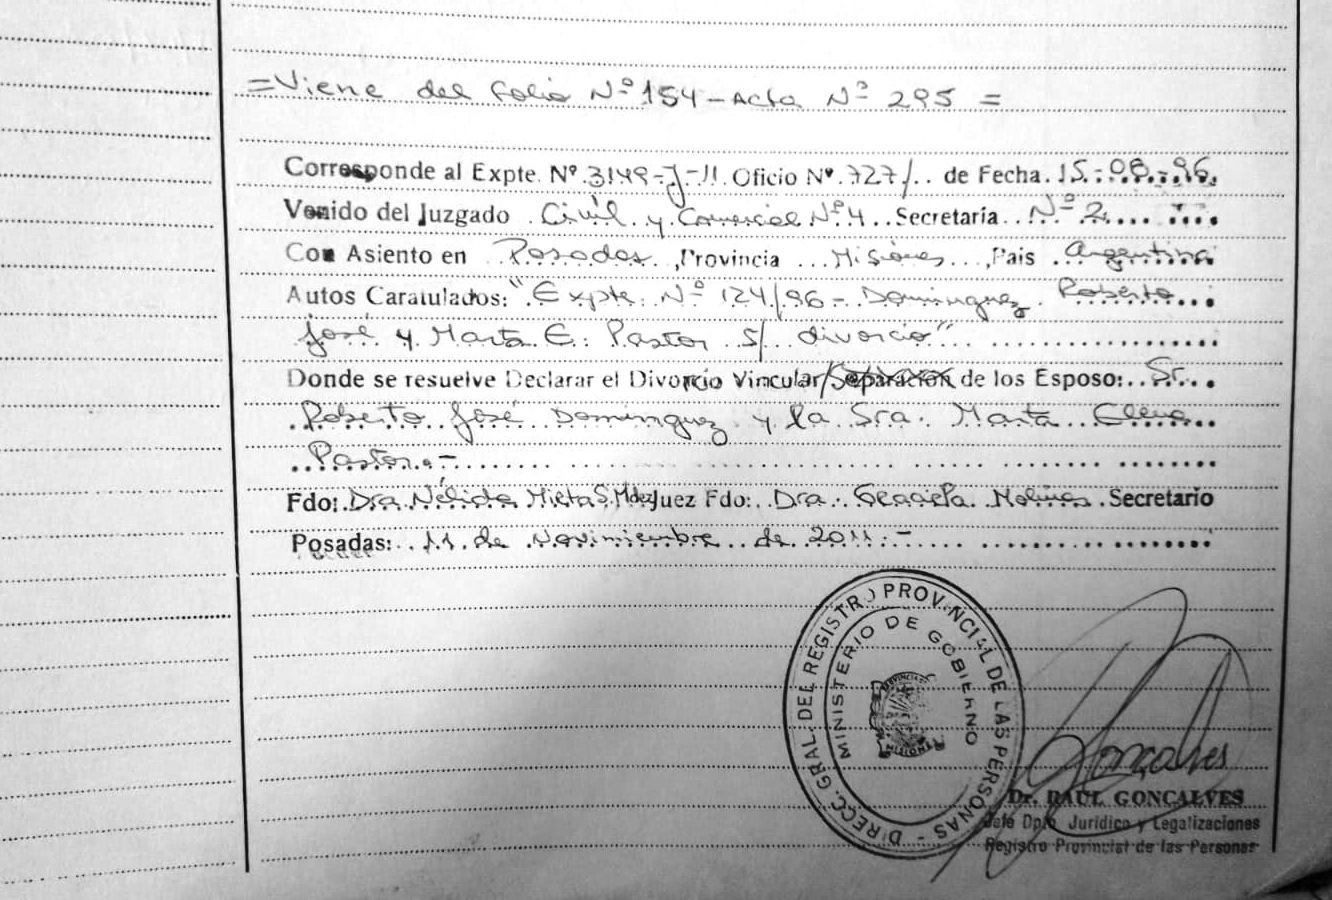 = Viene del folio Nº 154 - Acta Nº 295 =
Corresponde al Expte. Nº 3149-J-11. Oficio Nº 727/.. de Fecha 15-08-96.
Venido del Juzgado Civil y Comercial Nº 4 Secretaría Nº 2
Con Asiento en Posadas, Provincia Misiones, Pais Argentina
Autos Caratulados: "Expte. Nº 124/96 - Dominguez Roberto
José y Marta E. Pastor s/ divorcio"
Donde se resuelve Declarar el Divorcio Vincular/Separación de los Esposo: Sr.
Roberto José Dominguez y la Sra. Marta Elena
Pastor.-
Fdo: Dra. Nélida Juez Fdo: Dra. Graciela Molinas Secretario
Posadas: 11 de Noviembre de 2011.-
DIRECC. GRAL. DEL REGISTRO PROVINCIAL DE LAS PERSONAS -
MINISTERIO DE GOBIERNO
PROVINCIA DE
MISIONES
Goncalves
Dr. RAUL GONCALVES
Jefe Dpto. Jurídico y Legalizaciones
Registro Provincial de las Personas